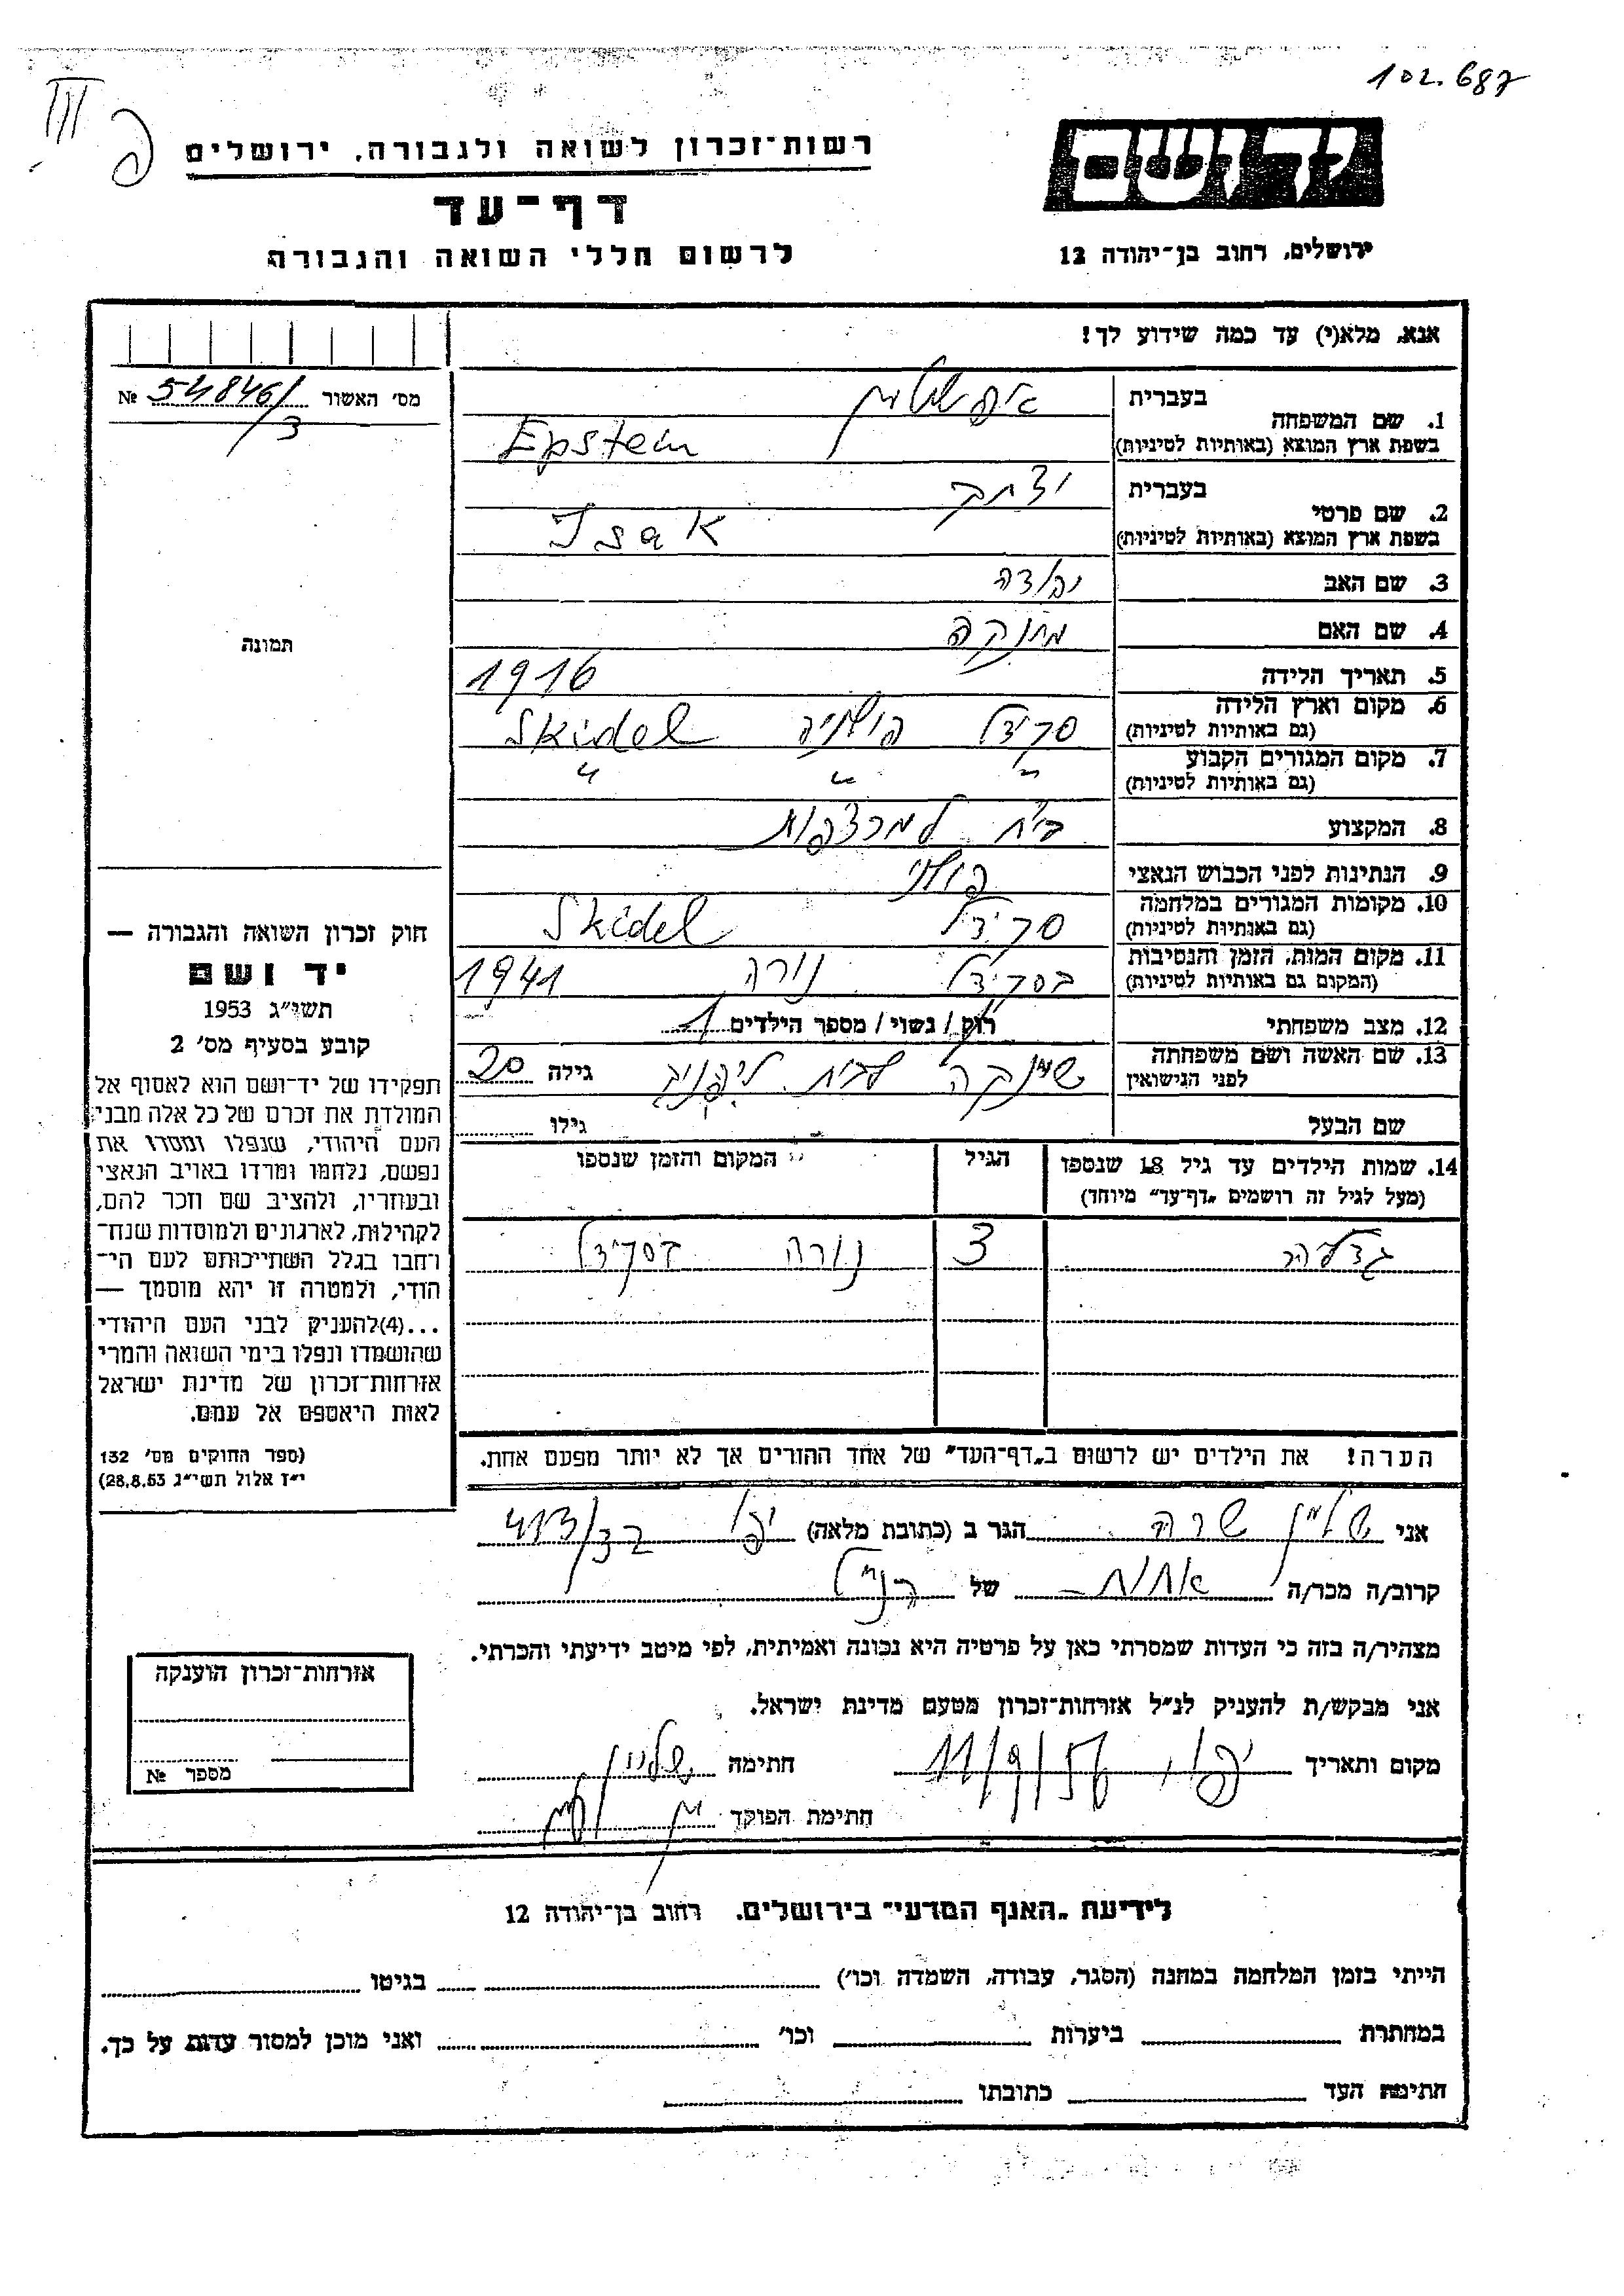 102.687
III
פ
רשות־זכרון לשואה ולגבורה, ירושלים
דף־עד
לרשום חללי השואה והגבורה
יד ושם
ירושלים, רחוב בן־יהודה 12
אנא, מלא(י) עד כמה שידוע לך!
מס׳ האשור 54846/3 №
1. שם המשפחה בעברית אפשטיין
בשפת ארץ המוצא (באותיות לטיניות) Epstein
2. שם פרטי בעברית יצחק
בשפת ארץ המוצא (באותיות לטיניות) Isak
3. שם האב יהודה
4. שם האם
5. תאריך הלידה 1916
6. מקום וארץ הלידה (גם באותיות לטיניות) סקידל פולניה Skidel
7. מקום המגורים הקבוע (גם באותיות לטיניות) " " "
8. המקצוע ביח למרצפות
9. הנתינות לפני הכבוש הנאצי פולני
10. מקומות המגורים במלחמה (גם באותיות לטיניות) סקידל Skidel
11. מקום המות, הזמן והנסיבות (המקום גם באותיות לטיניות) בסקידל נורה 1941
12. מצב משפחתי רוק / נשוי / מספר הילדים 1
13. שם האשה ושם משפחתה לפני הנישואין לבית גילה 20
שם הבעל גילו
14. שמות הילדים עד גיל 18 שנספו הגיל המקום והזמן שנספו
(מעל לגיל זה רושמים „דף־עד" מיוחד)
גדליה 3 נורה בסקידל
הערה! את הילדים יש לרשום ב„דף־העד" של אחד ההורים אך לא יותר מפעם אחת.
תמונה
חוק זכרון השואה והגבורה —
יד ושם
תשי״ג 1953
קובע בסעיף מס׳ 2
תפקידו של יד־ושם הוא לאסוף אל
המולדת את זכרם של כל אלה מבני
העם היהודי, שנפלו ומסרו את
נפשם, נלחמו ומרדו באויב הנאצי
ובעוזריו, ולהציב שם וזכר להם,
לקהילות, לארגונים ולמוסדות שנח־
רחבו בגלל השתייכותם לעם הי־
הודי, ולמטרה זו יהא מוסמך —
...(4)להעניק לבני העם היהודי
שהושמדו ונפלו בימי השואה והמרי
אזרחות־זכרון של מדינת ישראל
לאות היאספם אל עמם.
(ספר החוקים מס׳ 132
י״ז אלול תשי״ג 28.8.53)
אני שרה הגר ב (כתובת מלאה) יפו 413/32
קרוב/ה מכר/ה אחות של הנ"ל
מצהיר/ה בזה כי העדות שמסרתי כאן על פרטיה היא נכונה ואמיתית, לפי מיטב ידיעתי והכרתי.
אני מבקש/ת להעניק לנ״ל אזרחות־זכרון מטעם מדינת ישראל.
מקום ותאריך יפו, 11/9/56 חתימה
חתימת הפוקד
אזרחות־זכרון הוענקה
מספר №
לידיעת „האגף המדעי" בירושלים, רחוב בן־יהודה 12
הייתי בזמן המלחמה במחנה (הסגר, עבודה, השמדה וכו׳) בגיטו
במחתרת ביערות וכו׳ ואני מוכן למסור עדות על כך.
חתימת העד כתובתו